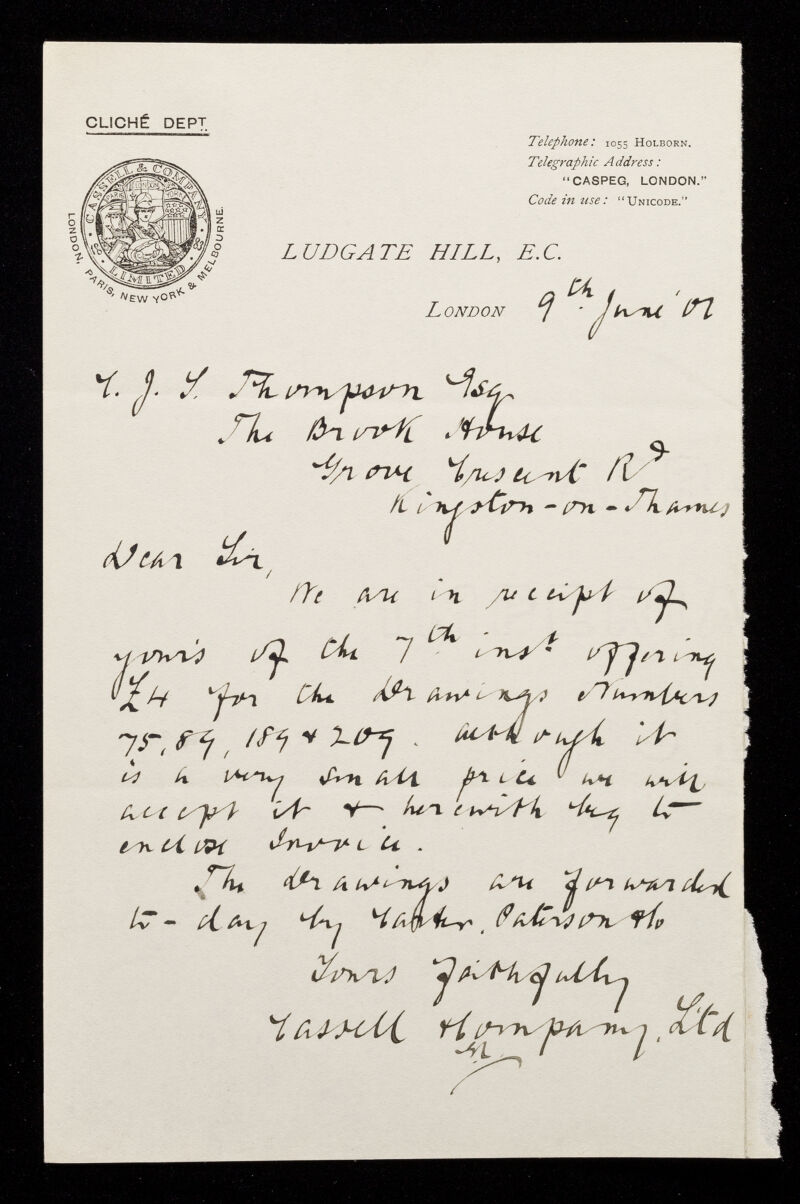 CLICHÉ DEPT.
CASSELL & COMPANY
LIMITED
LONDON, PARIS, NEW YORK & MELBOURNE.
Telephone: 1055 HOLBORN.
Telegraphic Address:
"CASPEG, LONDON."
Code in use: "UNICODE."
LUDGATE HILL, E.C.
LONDON 9th June '01
C. J. S. Thompson Esq
The Brook House
Grove Crescent Rd
Kingston-on-Thames
Dear Sir,
We are in receipt of
yours of the 7th inst offering
£4 for the Drawings Numbers
75, 89, 189 & 209. Although it
is a very small price we will
accept it & herewith beg to
enclose Invoice.
The drawings are forwarded
to-day by Carter, Paterson & Co
Yours faithfully
Cassell & Company, Ltd